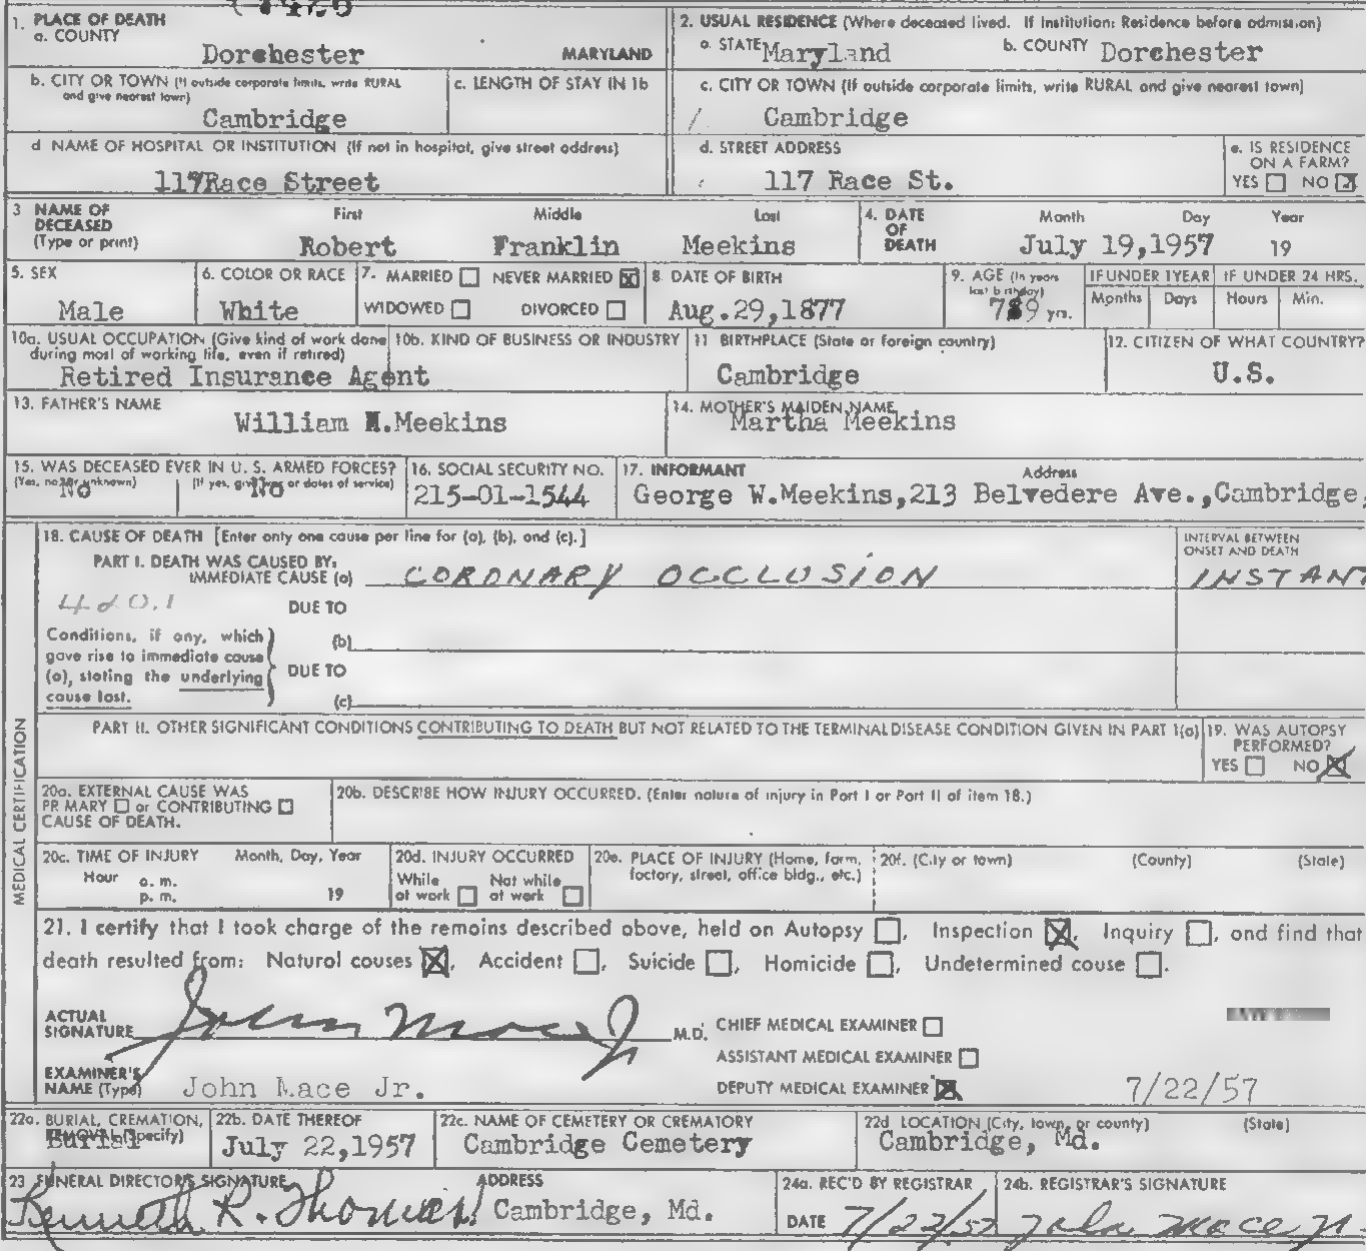 1. PLACE OF DEATH
a. COUNTY
Dorchester MARYLAND
2. USUAL RESIDENCE (Where deceased lived. If Institution: Residence before admission)
a. STATE Maryland b. COUNTY Dorchester
b. CITY OR TOWN (If outside corporate limits, write RURAL and give nearest town)
Cambridge
c. LENGTH OF STAY IN 1b
c. CITY OR TOWN (If outside corporate limits, write RURAL and give nearest town)
Cambridge
d NAME OF HOSPITAL OR INSTITUTION (If not in hospital, give street address)
117 Race Street
d. STREET ADDRESS
117 Race St.
e. IS RESIDENCE ON A FARM?
YES ☐ NO ☒
3 NAME OF DECEASED (Type or print)
First Middle Last
Robert Franklin Meekins
4. DATE OF DEATH
Month Day Year
July 19,1957 19
5. SEX
Male
6. COLOR OR RACE
White
7. MARRIED ☐ NEVER MARRIED ☒
WIDOWED ☐ DIVORCED ☐
8 DATE OF BIRTH
Aug.29,1877
9. AGE (In years last birthday)
79 yrs.
IF UNDER 1 YEAR
Months Days
IF UNDER 24 HRS.
Hours Min.
10a. USUAL OCCUPATION (Give kind of work done during most of working life, even if retired)
Retired Insurance Agent
10b. KIND OF BUSINESS OR INDUSTRY
11 BIRTHPLACE (State or foreign country)
Cambridge
12. CITIZEN OF WHAT COUNTRY?
U.S.
13. FATHER'S NAME
William M.Meekins
14. MOTHER'S MAIDEN NAME
Martha Meekins
15. WAS DECEASED EVER IN U. S. ARMED FORCES?
(Yes, no, or unknown) (If yes, give war or dates of service)
No No
16. SOCIAL SECURITY NO.
215-01-1544
17. INFORMANT Address
George W.Meekins,213 Belvedere Ave.,Cambridge,
MEDICAL CERTIFICATION
18. CAUSE OF DEATH [Enter only one cause per line for (a), (b), and (c).]
INTERVAL BETWEEN ONSET AND DEATH
PART I. DEATH WAS CAUSED BY:
IMMEDIATE CAUSE (a) CORONARY OCCLUSION INSTANT
420.1 DUE TO
Conditions, if any, which gave rise to immediate cause (a), stating the underlying cause last.
(b)
DUE TO
(c)
PART II. OTHER SIGNIFICANT CONDITIONS CONTRIBUTING TO DEATH BUT NOT RELATED TO THE TERMINAL DISEASE CONDITION GIVEN IN PART I(a)
19. WAS AUTOPSY PERFORMED?
YES ☐ NO ☒
20a. EXTERNAL CAUSE WAS
PRIMARY ☐ or CONTRIBUTING ☐
CAUSE OF DEATH.
20b. DESCRIBE HOW INJURY OCCURRED. (Enter nature of injury in Part I or Part II of item 18.)
20c. TIME OF INJURY Month, Day, Year
Hour a. m.
p. m. 19
20d. INJURY OCCURRED
While at work ☐ Not while at work ☐
20e. PLACE OF INJURY (Home, farm, factory, street, office bldg., etc.)
20f. (City or town) (County) (State)
21. I certify that I took charge of the remains described above, held on Autopsy ☐, Inspection ☒, Inquiry ☐, and find that
death resulted from: Natural causes ☒, Accident ☐, Suicide ☐, Homicide ☐, Undetermined cause ☐.
ACTUAL SIGNATURE John Mace Jr M.D.
CHIEF MEDICAL EXAMINER ☐
ASSISTANT MEDICAL EXAMINER ☐
EXAMINER'S NAME (Type) John Mace Jr.
DEPUTY MEDICAL EXAMINER ☒ 7/22/57
22a. BURIAL, CREMATION, REMOVAL (Specify)
Burial
22b. DATE THEREOF
July 22,1957
22c. NAME OF CEMETERY OR CREMATORY
Cambridge Cemetery
22d LOCATION (City, town, or county) (State)
Cambridge, Md.
23 FUNERAL DIRECTOR'S SIGNATURE ADDRESS
Kenneth R. Thomas Cambridge, Md.
24a. REC'D BY REGISTRAR
DATE 7/22/57
24b. REGISTRAR'S SIGNATURE
John Mace Jr